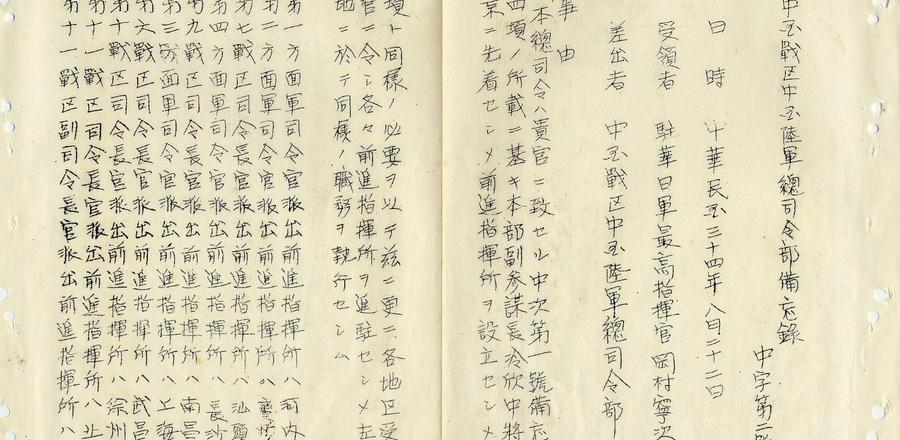 中国戦区中国陸軍總司令部備忘錄
中字第二
日時 中華民国三十四年八月二十二日
受領者 駐華日軍最高指揮官 岡村寧次
差出者 中国戦区中国陸軍總司令部
事由
本總司令ハ貴官ニ致セル中次第一號備忘
四項ノ所載ニ基キ本部副参謀長冷欣中将
京ニ先着セシメ前進指揮所ヲ設立セシメ
項ト同様ノ必要ヲ以テ茲ニ更ニ各地区受
官ニ令シ各々前進指揮所ヲ進駐セシメ左
地ニ於テ同様ノ職務ヲ執行セシム
第一方面軍司令官派出前進指揮所ハ河内
第二方面軍司令官派出前進指揮所ハ
第七戦区司令長官派出前進指揮所ハ汕頭
第四方面軍司令官派出前進指揮所ハ長沙
第九戦区司令長官派出前進指揮所ハ南昌
第三方面軍司令官派出前進指揮所ハ上海
第六戦区司令長官派出前進指揮所ハ武昌
第十戦区司令長官派出前進指揮所ハ徐州
第十一戦区司令長官派出前進指揮所ハ北
第十一戦区副司令長官派出前進指揮所ハ